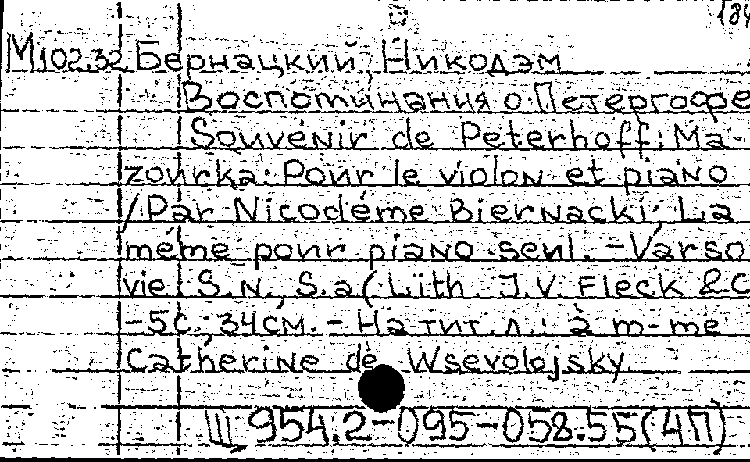 184
М102.32 Бернацкий, Никодэм
Воспоминания о Петергофе
Souvenir de Peterhoff: Ma-
zourka: Pour le violon et piano
/Par Nicodéme Biernacki; La
méme pour piano seul. - Varso
vie: S.N., S.a (Lith. J.V. Fleck & C
-5с.; 34см. - На тит. л.: à m-me
Catherine dè Wsevolojsky
Ш 954.2-095-058.55(4П)